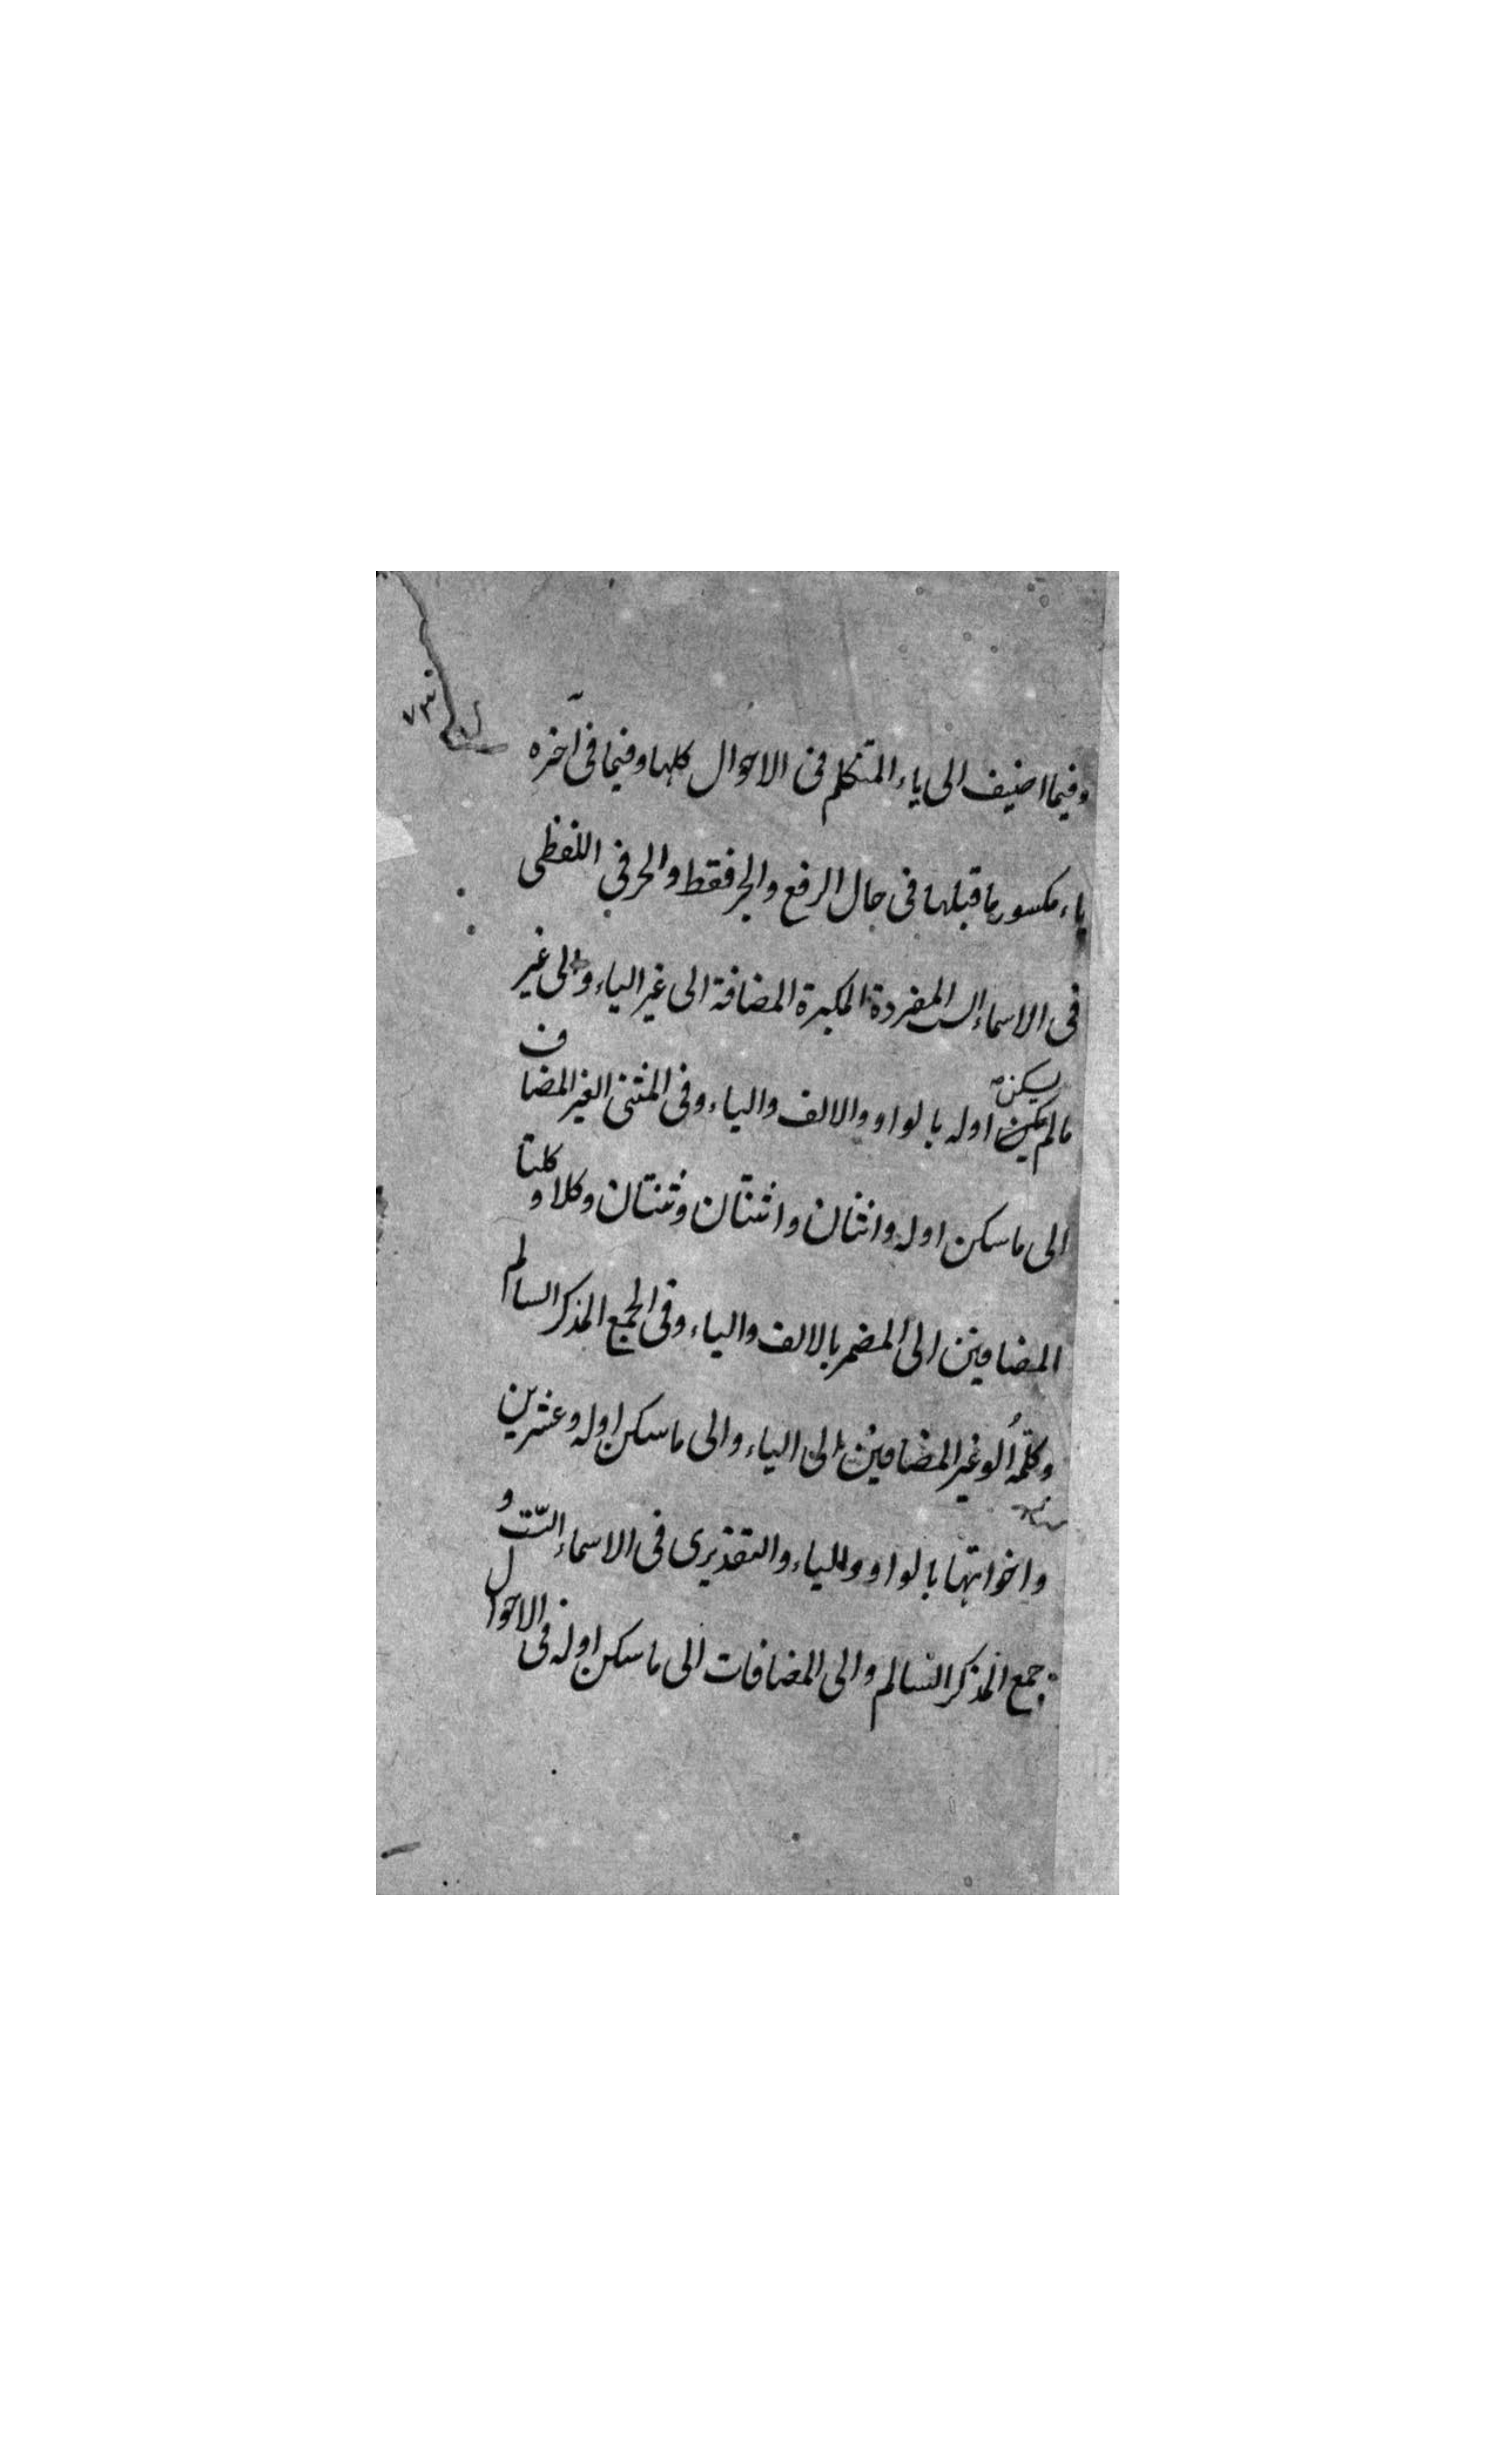 وفيما اضيف الى ياء المتكلم فى الاحوال كلها وفيما فى آخره
ياء مكسور ما قبلها فى حال الرفع والجر فقط والحرفى اللفظى
فى الاسماء الست المفردة المكبرة المضافة الى غير الياء والى غير
يسكن
مالم يكن اوله بالواو والالف والياء وفى المثنى الغير المضاف
الى ما سكن اوله واثنان واثنتان وثنتان وكلا وكلتا
المضافين الى المضمر بالالف والياء وفى الجمع المذكر السالم
وكلمة اُلو غير المضافين الى الياء والى ما سكن اوله وعشرين
واخواتها بالواو والياء والتقديرى فى الاسماء الستّ و
جمع المذكر السالم والى المضافات الى ما سكن اوله فى الاحوال